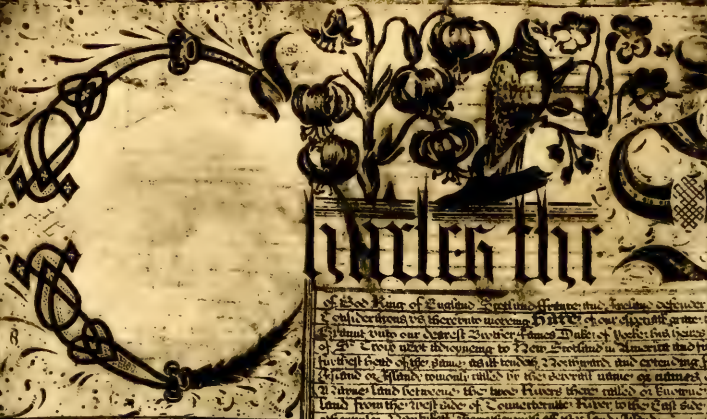 Charles the
of God King of England Scotland France and Ireland defender
Considerations vs thereunto moveing Have of our especiall grace
Graunt vnto our dearest Brother James Duke of Yorke his heires
of St Croix next adjoyneing to New Scotland in America and
furthest head of the same as itt tendeth Northward and extending
Island or Islands comonly called by the severall name or names
Mayne land betweene the two Rivers there called or knowne
land from the West side of Connectecutte River to the East side